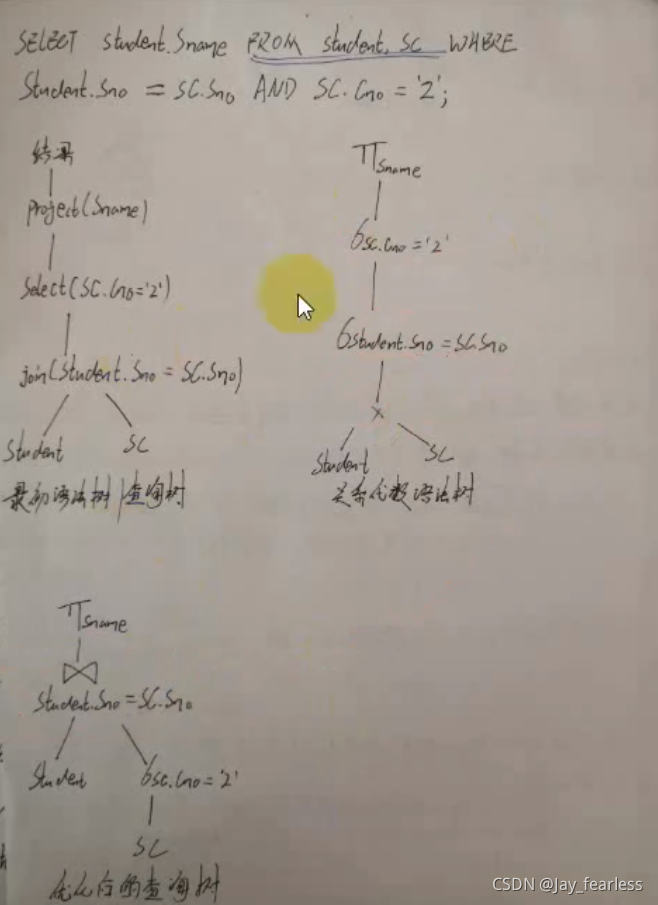 SELECT student.Sname FROM student, SC WHERE
Student.Sno = SC.Sno AND SC.Cno = '2';
结果
Project(Sname)
Select(SC.Cno='2')
join(Student.Sno = SC.Sno)
Student SC
最初语法树|查询树
∏Sname
6SC.Cno='2'
6Student.Sno=SC.Sno
×
Student SC
关系代数语法树
∏Sname
⋈
Student.Sno=SC.Sno
Student 6SC.Cno='2'
SC
优化后的查询树
CSDN @Jay_fearless